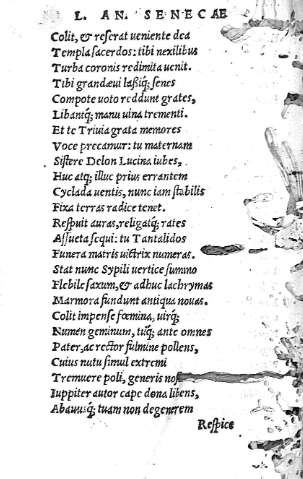 L. AN. SENECAE
Colit, & reserat ueniente dea
Templa sacerdos: tibi nexilibus
Turba coronis redimita uenit.
Tibi grandæui lassiq; senes
Compote uoto reddunt grates,
Libantq; manu uina trementi.
Et te Triuia grata memores
Voce precamur: tu maternam
Sistere Delon Lucina iubes,
Huc atq; illuc prius errantem
Cyclada uentis, nunc iam stabilis
Fixa terras radice tenet.
Respuit auras, religatq; rates
Assueta sequi: tu Tantalidos
Funera matris uictrix numeras.
Stat nunc Sypili uertice summo
Flebile saxum, & adhuc lachrymas
Marmora fundunt antiqua nouas.
Colit impense fœmina, uirq;
Numen geminum, tuq; ante omnes
Pater, ac rector fulmine pollens,
Cuius nutu simul extremi
Tremuere poli, generis nos
Iuppiter autor cape dona libens,
Abauusq; tuam non degenerem
Respice